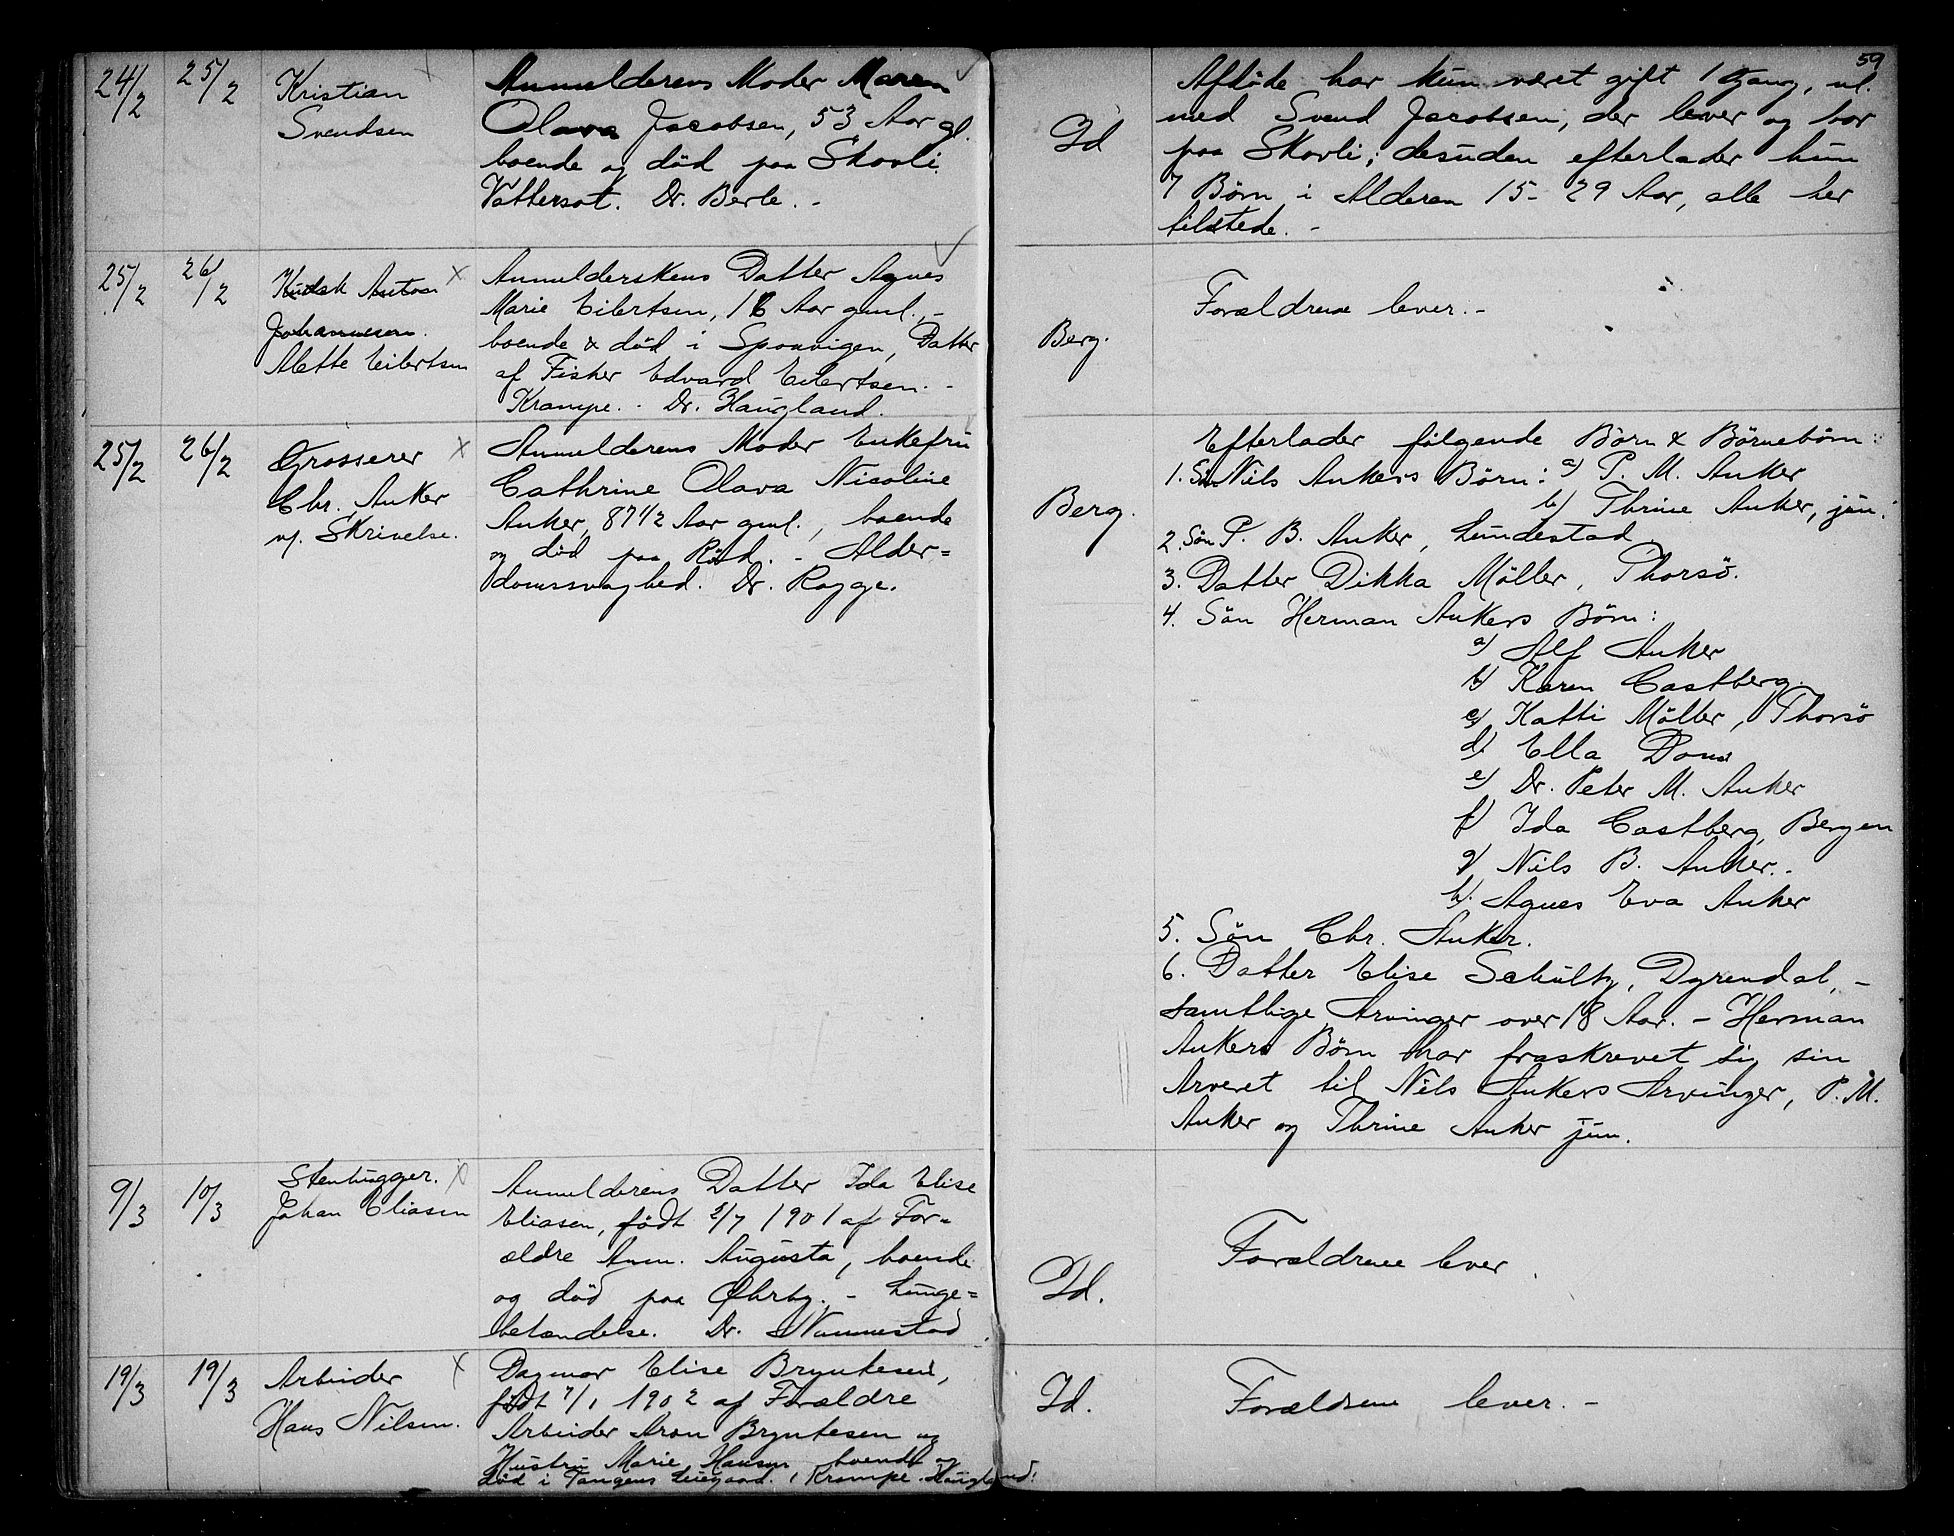 59
24/2 25/2 Kristian
Svendsen
Anmelderens Moder Maren
Olava Jacobsen, 53 Aar gl.
boende og död paa Skovli
Vattersot. Dr. Berle. -
Id
Afdöde har kun været gift 1 Gang, nl.
med Svend Jacobsen, der lever og bor
paa Skovli; desuden efterlader hun
7 Börn i Alderen 15 - 29 Aar, alle her
tilstede. -
25/2 26/2 Kudsk Anton
Johannesen.
Mette Eilertsen
Anmelderskens Datter Agnes
Marie Eilertsen, 16 Aar gml., -
boende & död i Sponvigen, Datter
af Fisker Edvard Eilertsen. -
Krampe. - Dr. Haugland.
Berg.
Forældrene lever. -
25/2 26/2 Grosserer
Chr. Anker
v/. Skrivelse.
Anmelderens Moder Enkefru
Cathrine Olava Nicoline
Anker, 87 1/2 Aar gml., boende
og död paa Röd. - Alder=
domssvaghed. Dr. Rogge.
Berg.
Efterlader fölgende Börn & Börnebörn:
1. Sön Nils Ankers Börn: a) P. M. Anker
b) Thrine Anker, jun.
2. Sön P. B. Anker, Lundestad.
3. Datter Dikka Möller, Thorsö.
4. Sön Herman Ankers Börn:
a) Alf Anker
b) Karen Castberg.
c) Katti Möller, Thorsö
d) Ella Dons
e) Dr. Peter M. Anker
f) Ida Castberg, Bergen
g) Nils B. Anker. -
h). Agnes Eva Anker
5. Sön Chr. Anker.
6. Datter Elise Schultz, Dyrendal, -
samtlige Arvinger over 18 Aar. - Herman
Ankers Börn har fraskrevet sig sin
Arveret til Nils Ankers Arvinger, P. M.
Anker og Thrine Anker jun.
9/3 10/3 Stenhugger.
Johan Eliasen
Anmelderens Datter Ida Elise
Eliasen, födt 5/7 1901 af For=
ældre Anm. Augusta, boende
og död paa Øhrby. - Lunge=
betændelse. Dr. Nannestad.
Id.
Forældrene lever.
19/3 19/3 Arbeider
Hans Nilsen.
Dagmar Elise Bryntesen,
födt 7/1 1902 af Forældre
Arbeider Aron Bryntesen og
Hustru Marie Hansen boende og
död i Tangens Leiegaard. Krampe. Haugland.
Id.
Forældrene lever. -